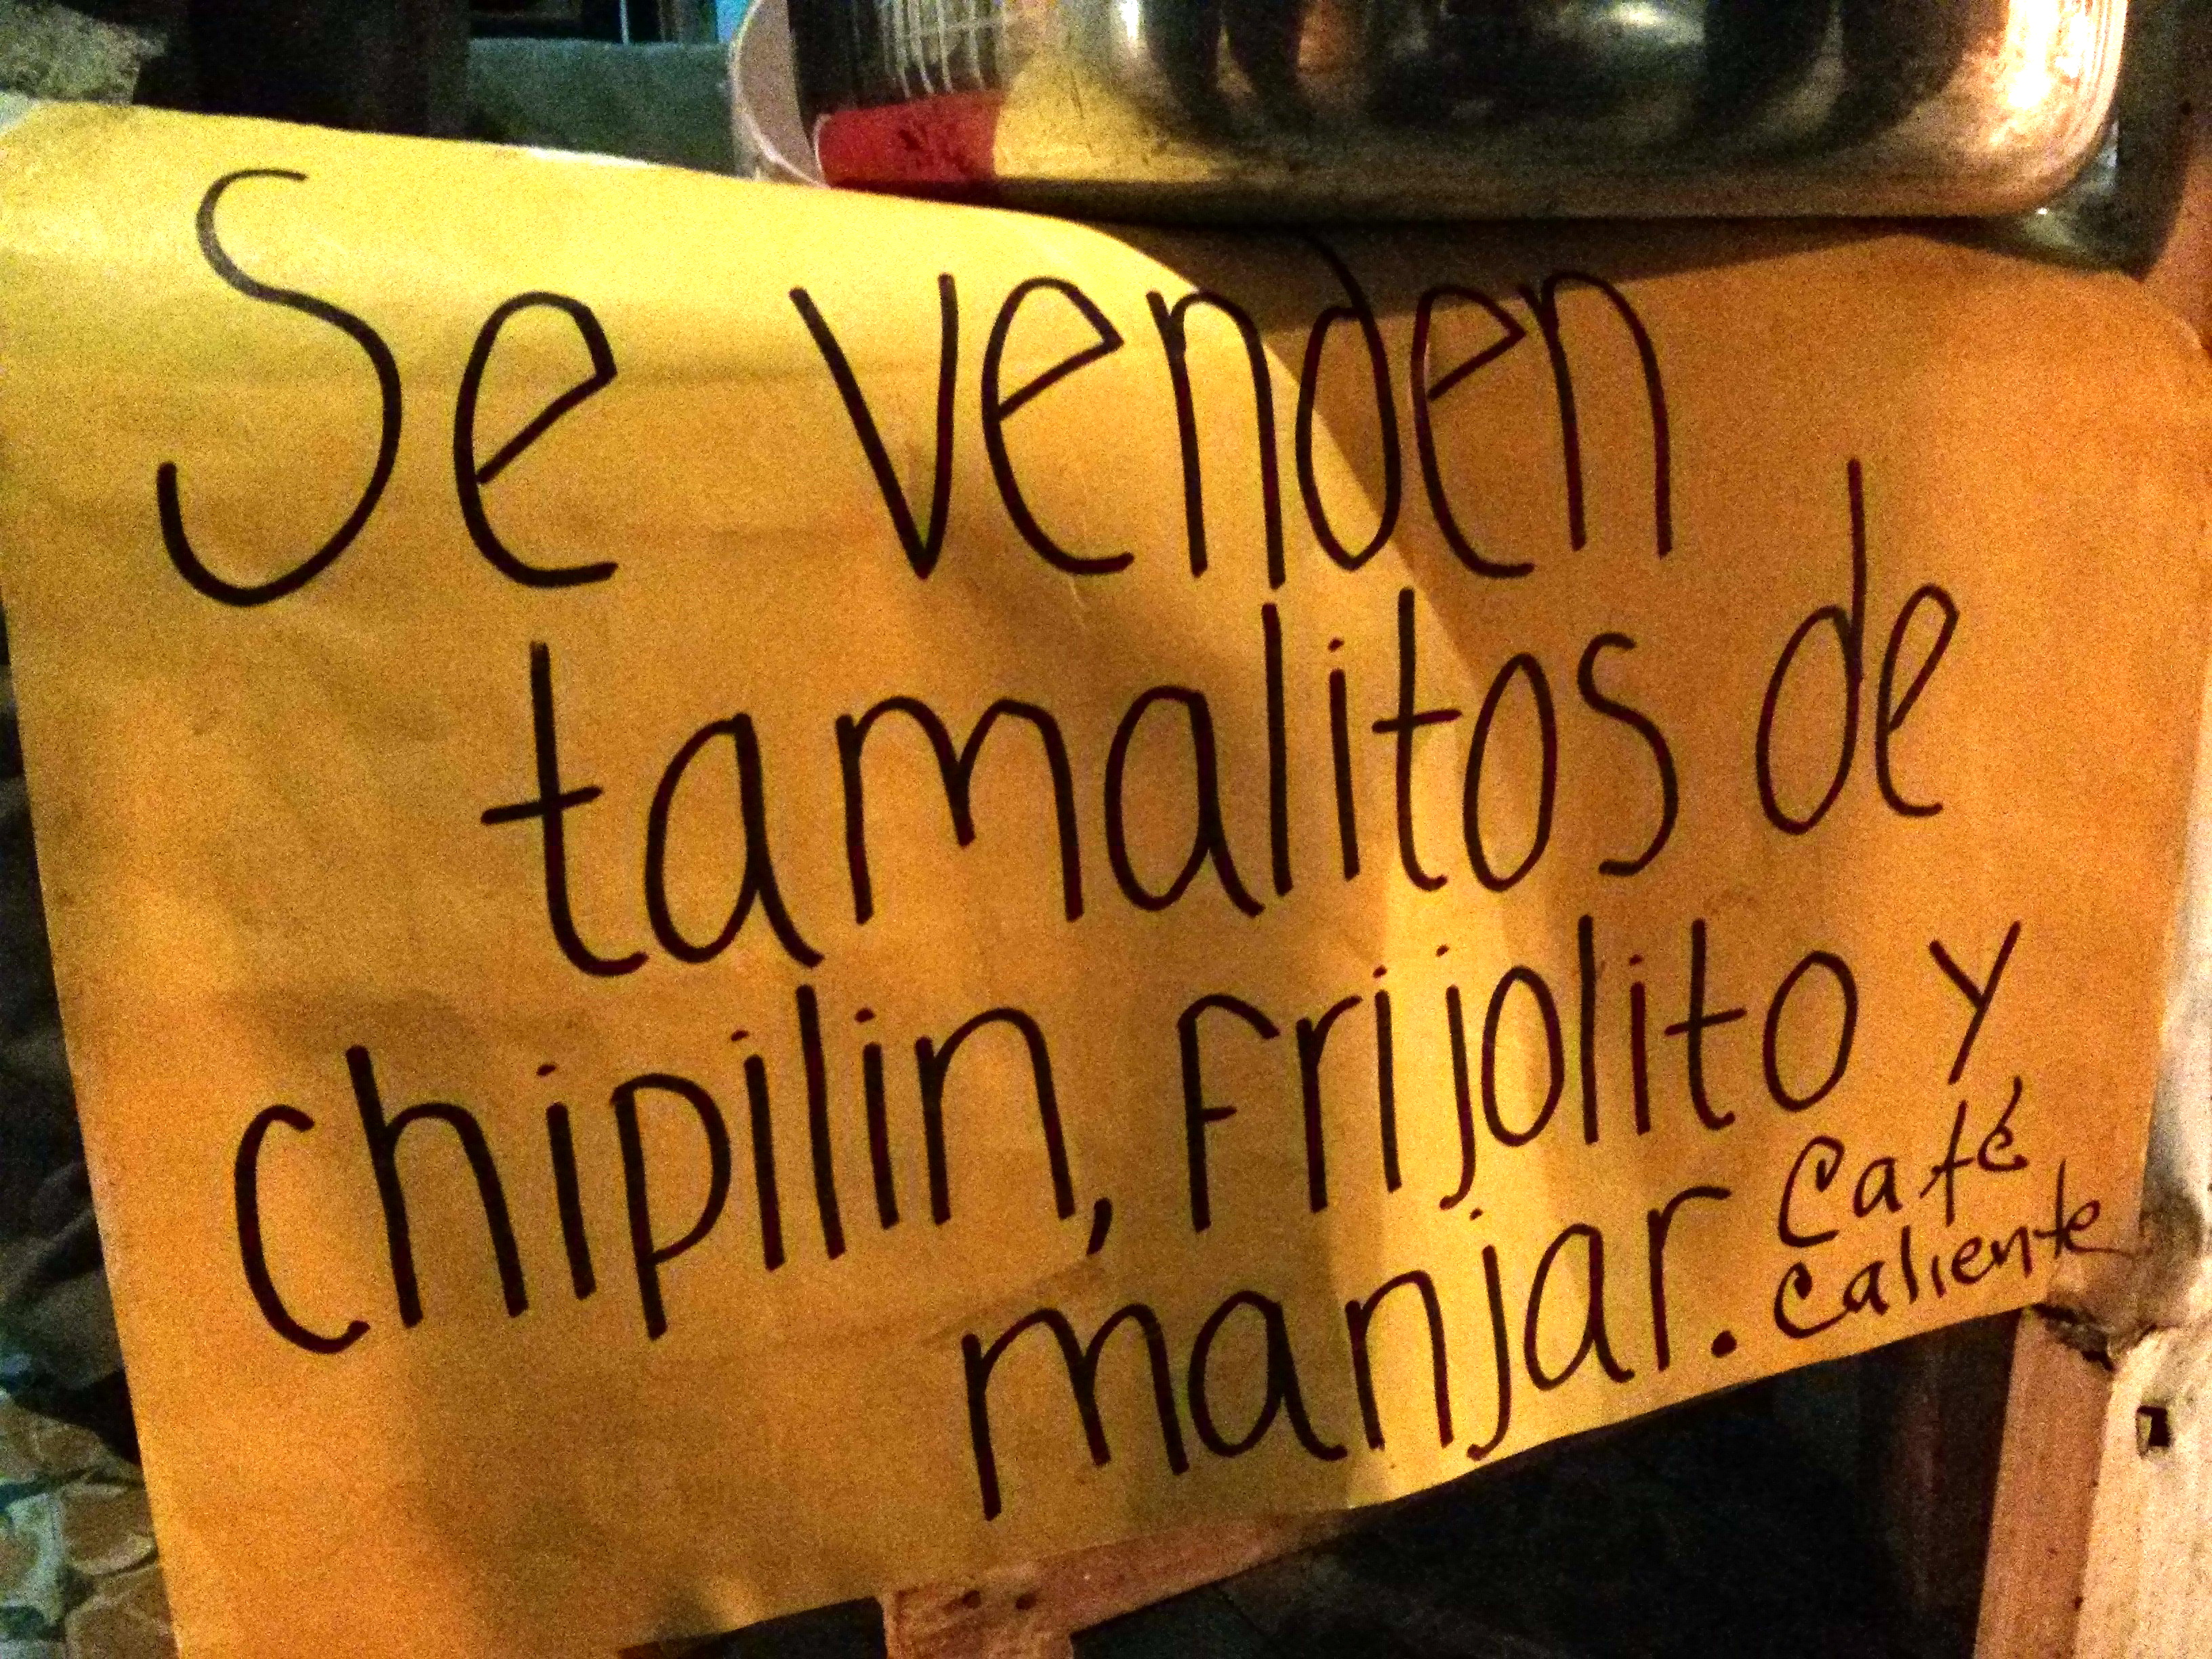 Se venden
tamalitos de
chipilin, Frijolito y
manjar. Café
caliente